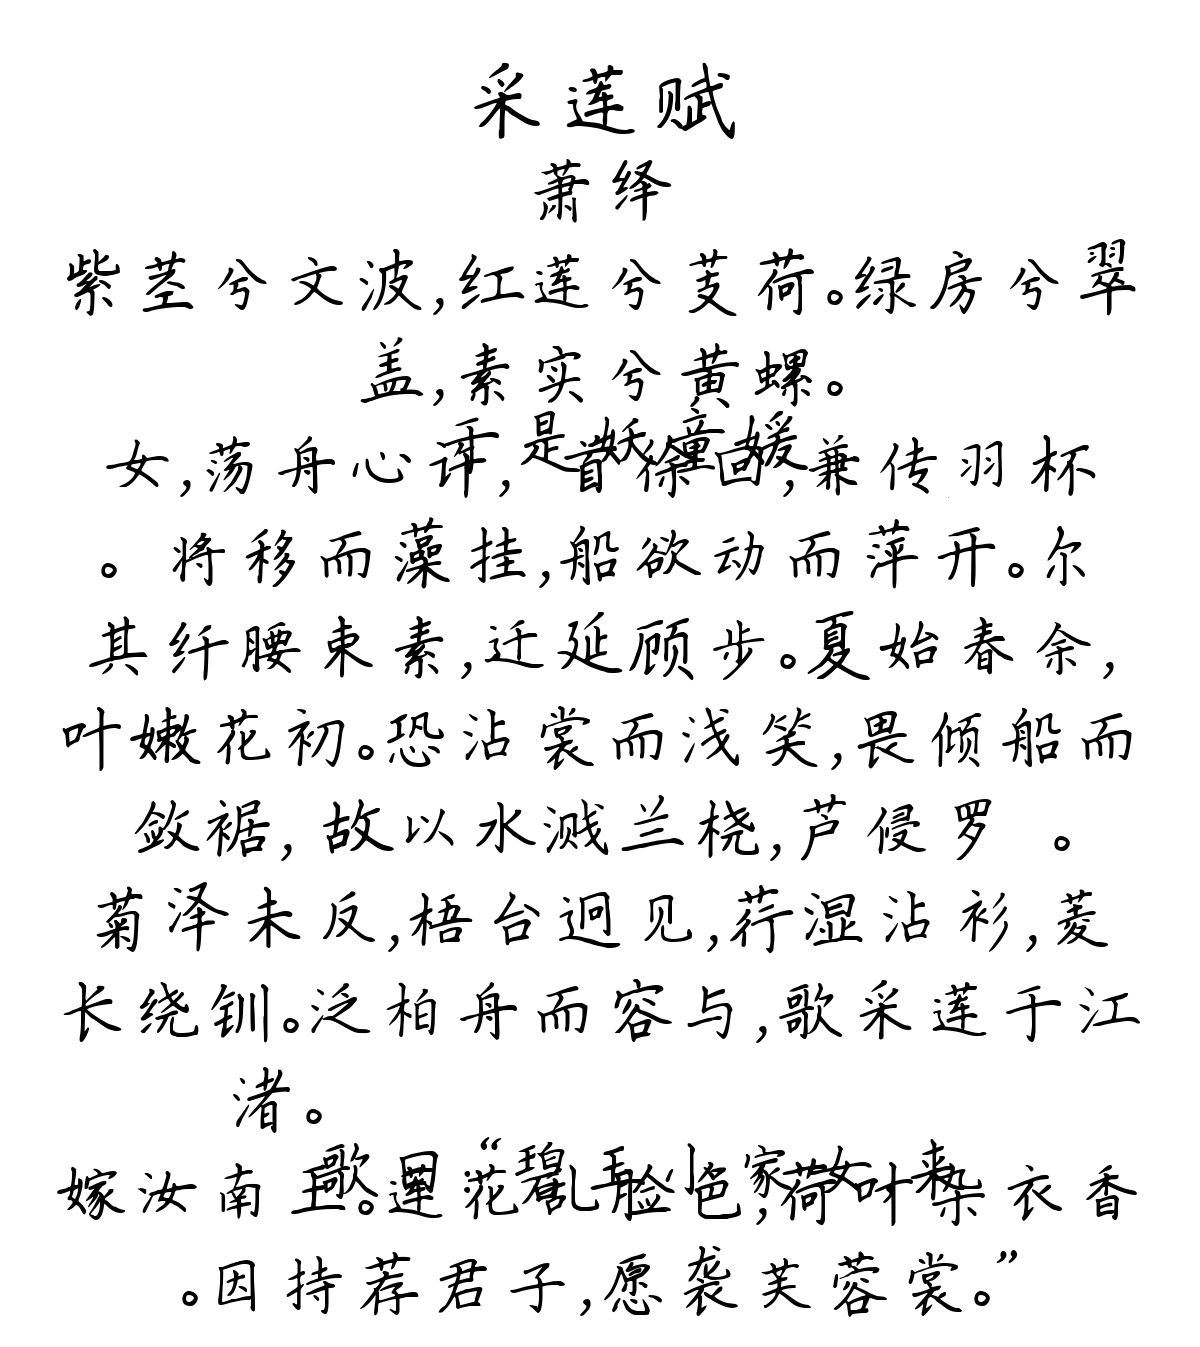 采莲赋
萧绎
紫茎兮文波,红莲兮芰荷。绿房兮翠
盖,素实兮黄螺。
于是妖童媛
女,荡舟心许,首徐回,兼传羽杯
。将移而藻挂,船欲动而萍开。尔
其纤腰束素,迁延顾步。夏始春余,
叶嫩花初。恐沾裳而浅笑,畏倾船而
敛裾,故以水溅兰桡,芦侵罗 。
菊泽未反,梧台迥见,荇湿沾衫,菱
长绕钏。泛柏舟而容与,歌采莲于江
渚。
歌曰:“碧玉小家女,来
嫁汝南王。莲花乱脸色,荷叶染衣香
。因持荐君子,愿袭芙蓉裳。”